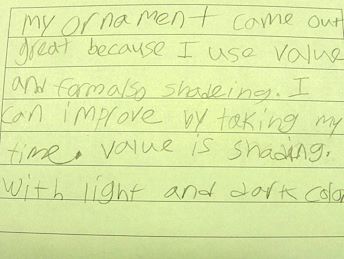 my ornament came out
great because I use value
and formalso shadeing. I
can improve by taking my
time. value is shading.
with light and dark color